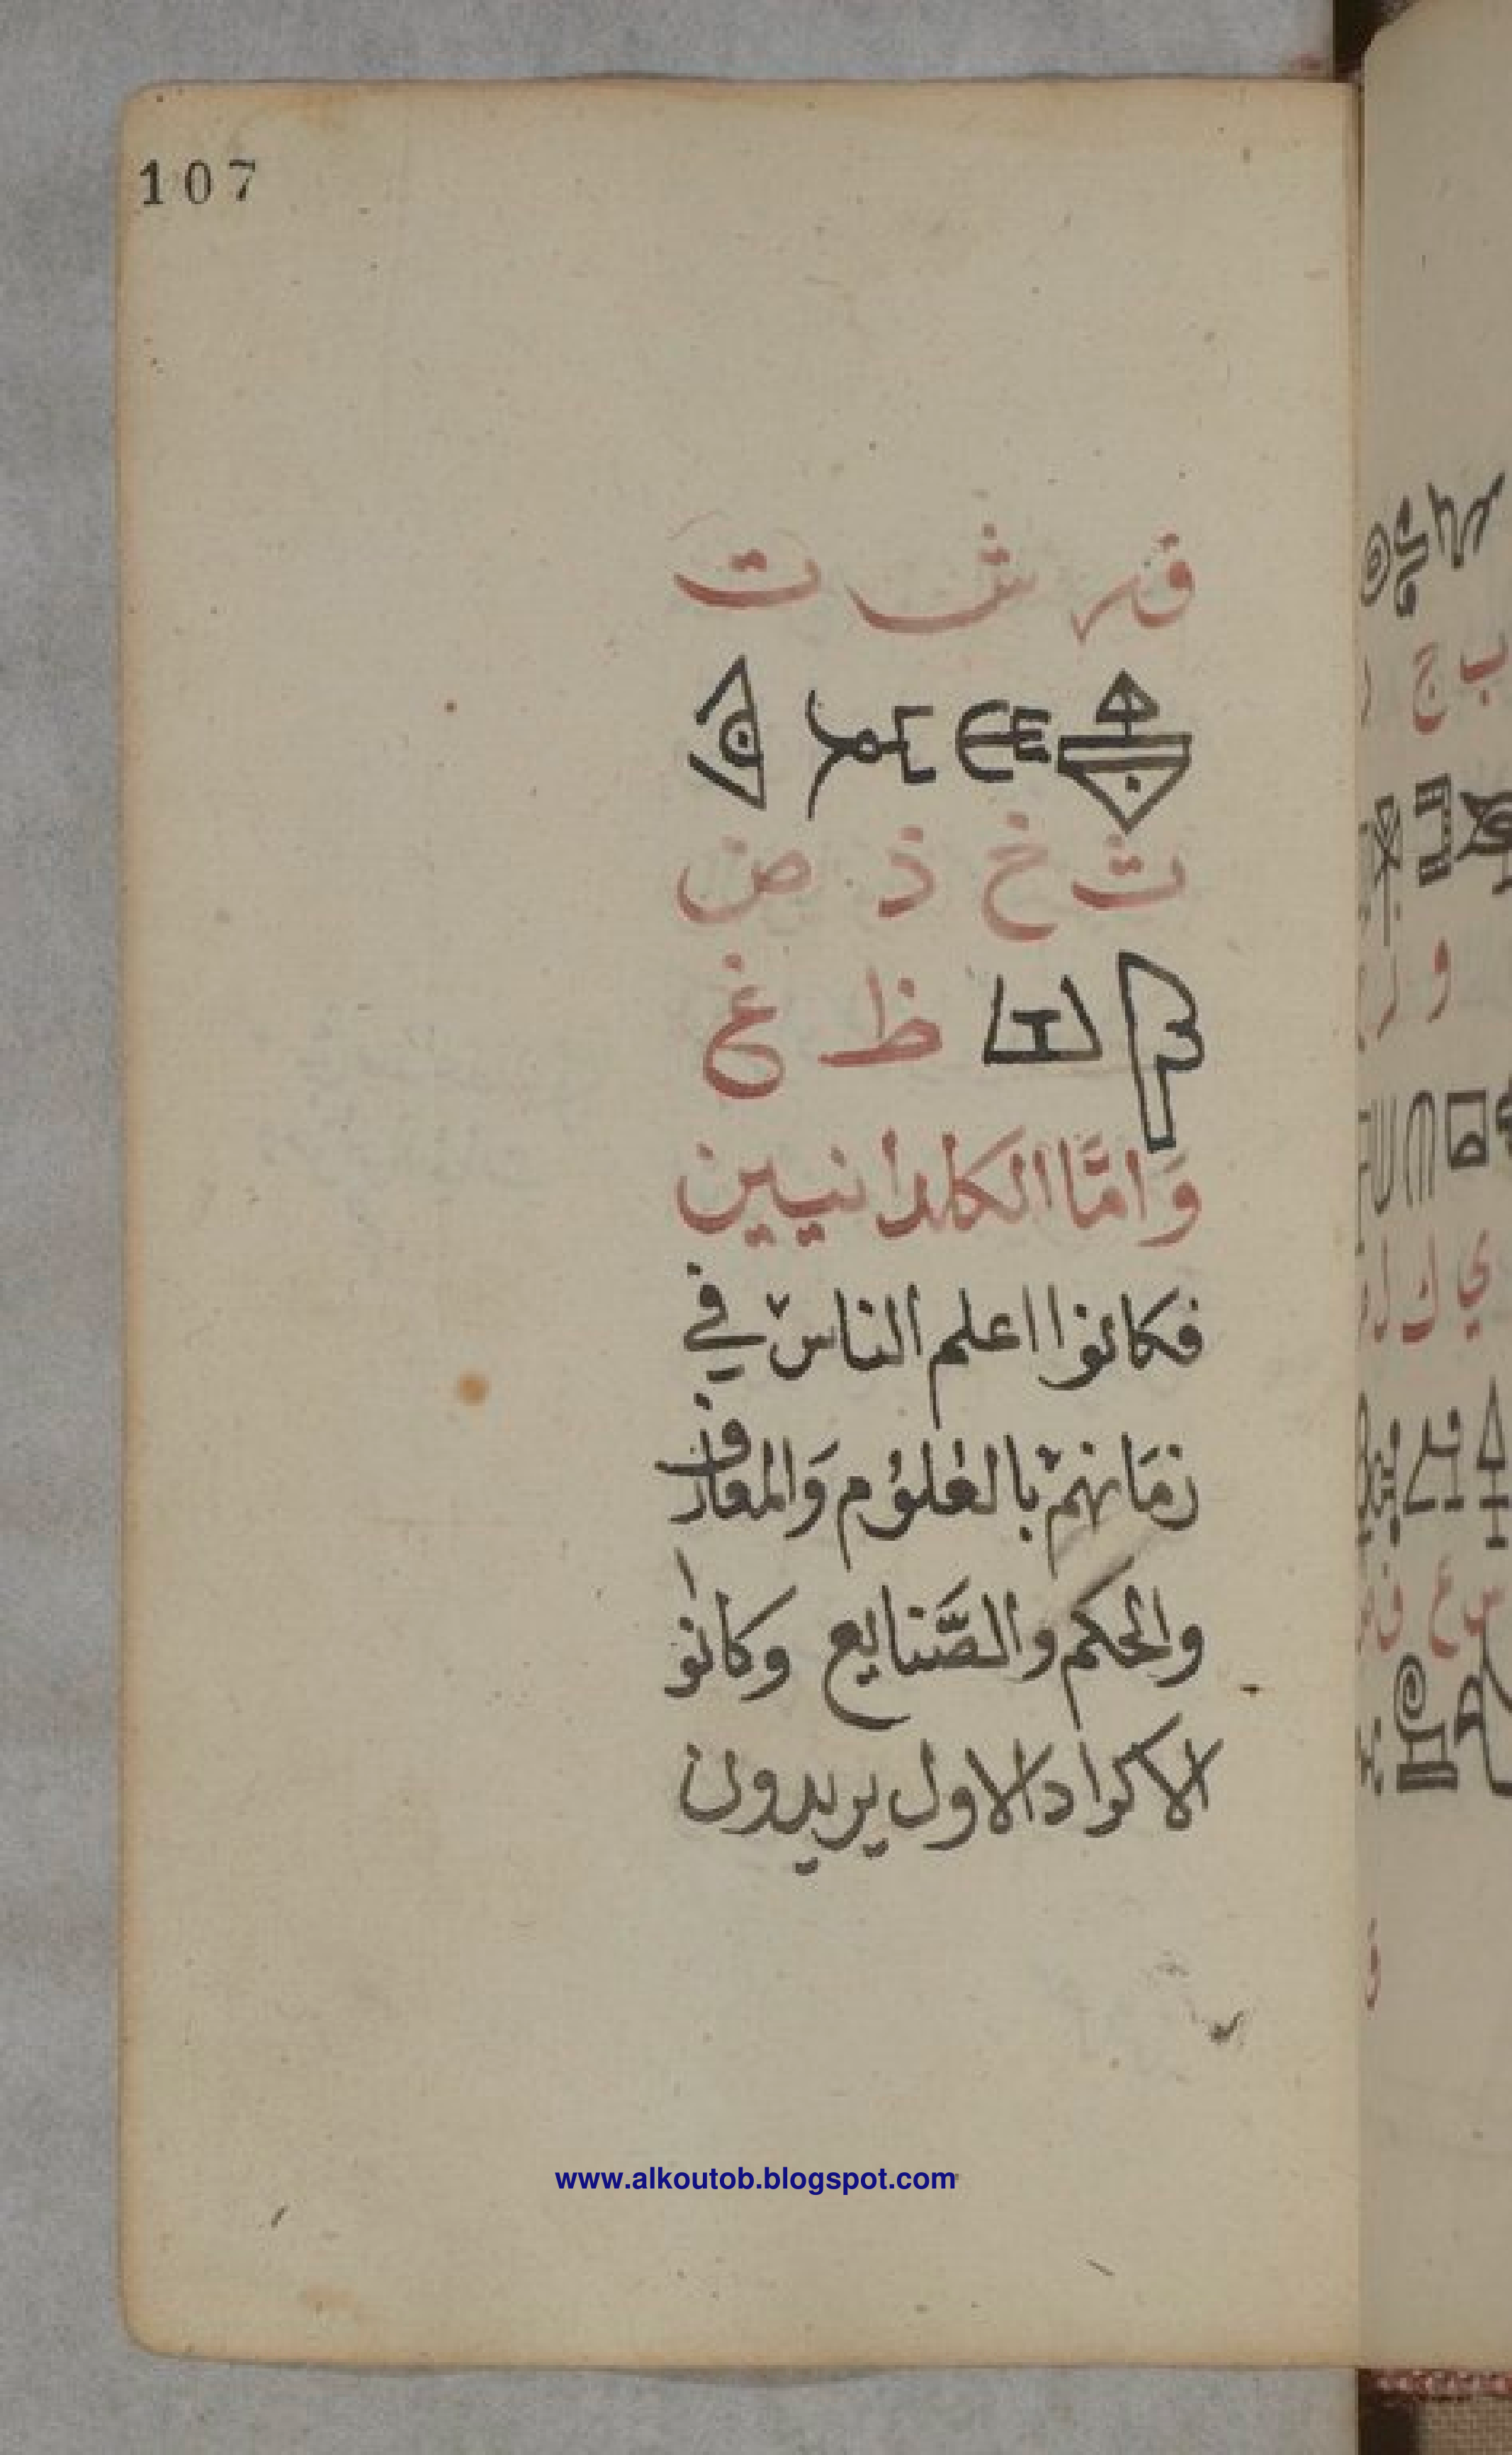 107
ق ر ش ت
ث خ ذ ض
ظ غ
وَامَّا الكلدانيين
فكانوا اعلم الناس في
زمَانهم بالعُلوُم وَالمعارف
والحكم والصَّنايع وكانوا
الاكراد الاول يريدون
ب ج
و ز
ي ك ل
س ع ف ص
www.alkoutob.blogspot.com